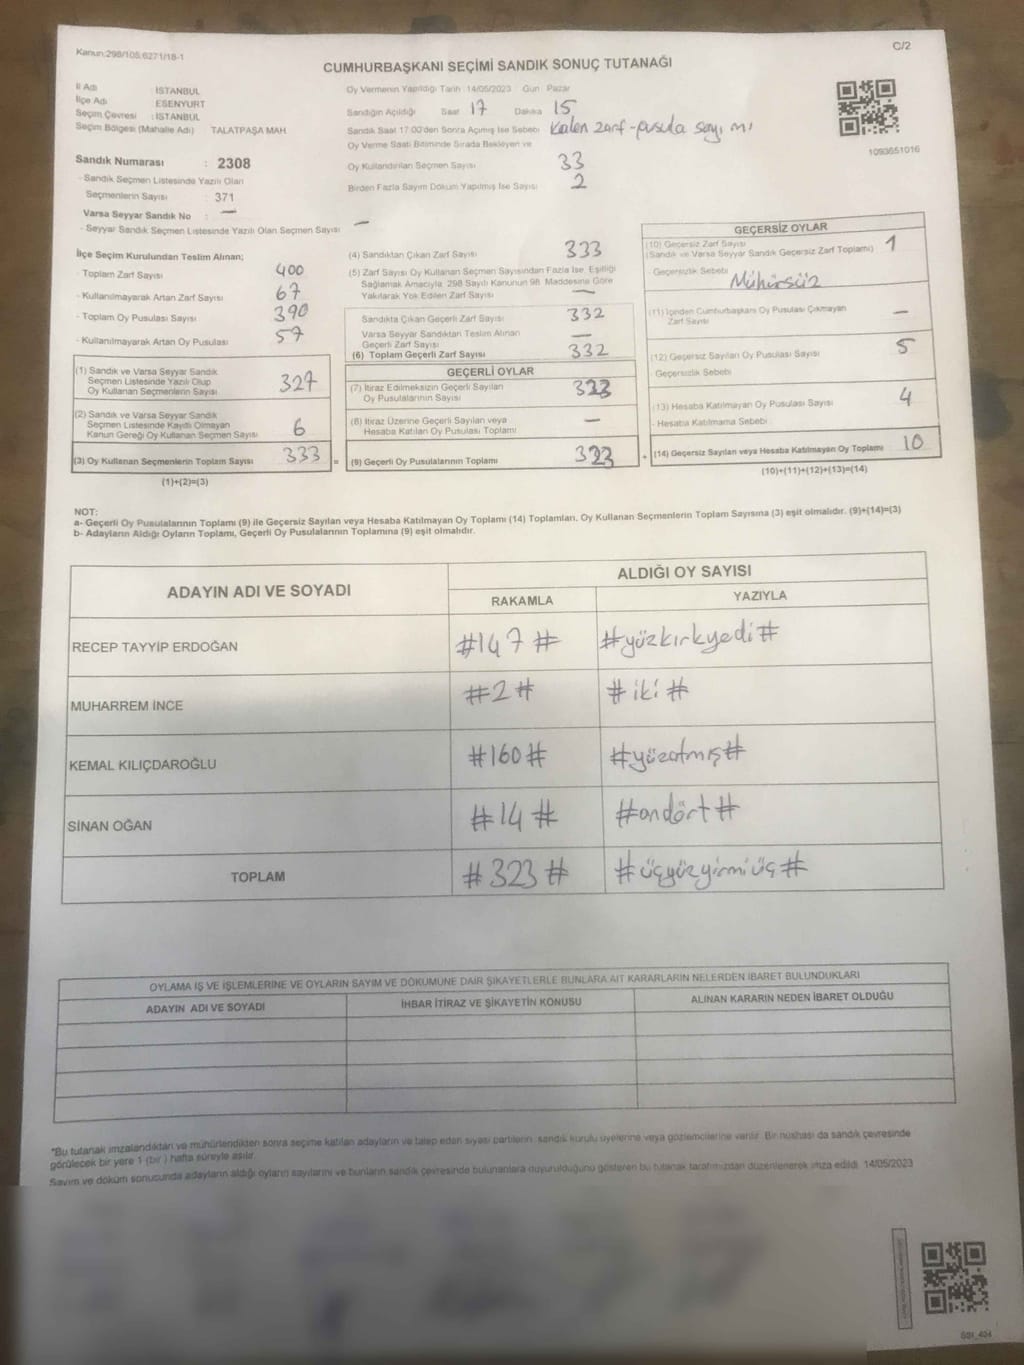 Kanun:298/105,6271/18-1
C/2
CUMHURBAŞKANI SEÇİMİ SANDIK SONUÇ TUTANAĞI
İl Adı İSTANBUL
İlçe Adı ESENYURT
Seçim Çevresi : İSTANBUL
Seçim Bölgesi (Mahalle Adı) TALATPAŞA MAH.
Sandık Numarası : 2308
- Sandık Seçmen Listesinde Yazılı Olan
Seçmenlerin Sayısı : 371
Varsa Seyyar Sandık No : —
- Seyyar Sandık Seçmen Listesinde Yazılı Olan Seçmen Sayısı —
Oy Vermenin Yapıldığı Tarih 14/05/2023 Gün Pazar
Sandığın Açıldığı Saat 17 Dakika 15
Sandık Saat 17:00'den Sonra Açılmış İse Sebebi Kalen zarf-pusula sayımı
Oy Verme Saati Bitiminde Sırada Bekleyen ve
Oy Kullandırılan Seçmen Sayısı 33
Birden Fazla Sayım Döküm Yapılmış İse Sayısı 2
1093651016
İlçe Seçim Kurulundan Teslim Alınan;
- Toplam Zarf Sayısı 400
- Kullanılmayarak Artan Zarf Sayısı 67
- Toplam Oy Pusulası Sayısı 390
- Kullanılmayarak Artan Oy Pusulası 57
(1) Sandık ve Varsa Seyyar Sandık
Seçmen Listesinde Yazılı Olup
Oy Kullanan Seçmenlerin Sayısı 327
(2) Sandık ve Varsa Seyyar Sandık
Seçmen Listesinde Kayıtlı Olmayan
Kanun Gereği Oy Kullanan Seçmen Sayısı 6
(3) Oy Kullanan Seçmenlerin Toplam Sayısı 333
(1)+(2)=(3)
(4) Sandıktan Çıkan Zarf Sayısı 333
(5) Zarf Sayısı Oy Kullanan Seçmen Sayısından Fazla İse, Eşitliği
Sağlamak Amacıyla, 298 Sayılı Kanunun 98. Maddesine Göre
Yakılarak Yok Edilen Zarf Sayısı —
Sandıkta Çıkan Geçerli Zarf Sayısı 332
Varsa Seyyar Sandıktan Teslim Alınan
Geçerli Zarf Sayısı —
(6) Toplam Geçerli Zarf Sayısı 332
GEÇERLİ OYLAR
(7) İtiraz Edilmeksizin Geçerli Sayılan
Oy Pusulalarının Sayısı 323
(8) İtiraz Üzerine Geçerli Sayılan veya
Hesaba Katılan Oy Pusulası Toplamı —
= (9) Geçerli Oy Pusulalarının Toplamı 323
GEÇERSİZ OYLAR
(10) Geçersiz Zarf Sayısı
(Sandık ve Varsa Seyyar Sandık Geçersiz Zarf Toplamı) 1
- Geçersizlik Sebebi Mühürsüz
(11) İçinden Cumhurbaşkanı Oy Pusulası Çıkmayan
Zarf Sayısı —
(12) Geçersiz Sayılan Oy Pusulası Sayısı 5
- Geçersizlik Sebebi
(13) Hesaba Katılmayan Oy Pusulası Sayısı 4
- Hesaba Katılmama Sebebi
+ (14) Geçersiz Sayılan veya Hesaba Katılmayan Oy Toplamı 10
(10)+(11)+(12)+(13)=(14)
NOT:
a- Geçerli Oy Pusulalarının Toplamı (9) ile Geçersiz Sayılan veya Hesaba Katılmayan Oy Toplamı (14) Toplamları, Oy Kullanan Seçmenlerin Toplam Sayısına (3) eşit olmalıdır. (9)+(14)=(3)
b- Adayların Aldığı Oyların Toplamı, Geçerli Oy Pusulalarının Toplamına (9) eşit olmalıdır.
ADAYIN ADI VE SOYADI
ALDIĞI OY SAYISI
RAKAMLA YAZIYLA
RECEP TAYYİP ERDOĞAN #147# #yüzkırkyedi#
MUHARREM İNCE #2# #iki#
KEMAL KILIÇDAROĞLU #160# #yüzatmış#
SİNAN OĞAN #14# #ondört#
TOPLAM #323# #üçyüzyirmiüç#
OYLAMA İŞ VE İŞLEMLERİNE VE OYLARIN SAYIM VE DÖKÜMÜNE DAİR ŞİKAYETLERLE BUNLARA AİT KARARLARIN NELERDEN İBARET BULUNDUKLARI
ADAYIN ADI VE SOYADI İHBAR İTİRAZ VE ŞİKAYETİN KONUSU ALINAN KARARIN NEDEN İBARET OLDUĞU
*Bu tutanak imzalandıktan ve mühürlendikten sonra seçime katılan adayların ve talep eden siyasi partilerin, sandık kurulu üyelerine veya gözlemcilerine verilir. Bir nüshası da sandık çevresinde
görülecek bir yere 1 (bir) hafta süreyle asılır.
Sayım ve döküm sonucunda adayların aldığı oyların sayılarını ve bunların sandık çevresinde bulunanlara duyurulduğunu gösteren bu tutanak tarafımızdan düzenlenerek imza edildi. 14/05/2023